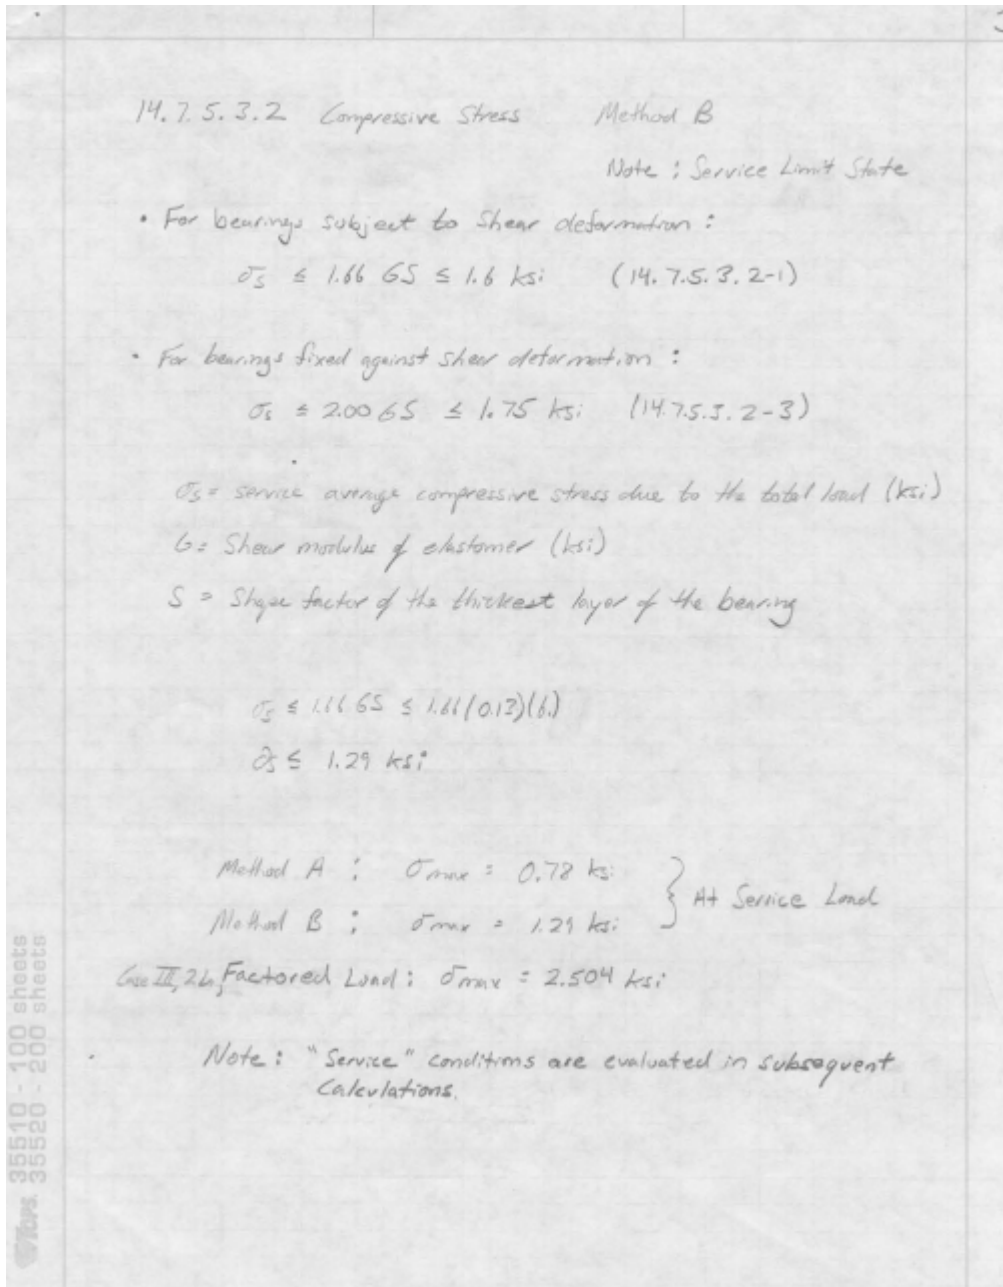 3
14.7.5.3.2 Compressive Stress Method B
Note : Service Limit State
• For bearings subject to shear deformation :
σs ≤ 1.66 GS ≤ 1.6 ksi (14.7.5.3.2-1)
• For bearings fixed against shear deformation :
σs ≤ 2.00 GS ≤ 1.75 ksi (14.7.5.3.2-3)
σs = service average compressive stress due to the total load (ksi)
G = Shear modulus of elastomer (ksi)
S = Shape factor of the thickest layer of the bearing
σs ≤ 1.66 GS ≤ 1.66(0.13)(6.)
σs ≤ 1.29 ksi
Method A : σmax = 0.78 ksi
Method B : σmax = 1.29 ksi
} At Service Load
Case III, 2b, Factored Load : σmax = 2.504 ksi
Note : "Service" conditions are evaluated in subsequent
Calculations.
TOPS. 35510 - 100 sheets
35520 - 200 sheets